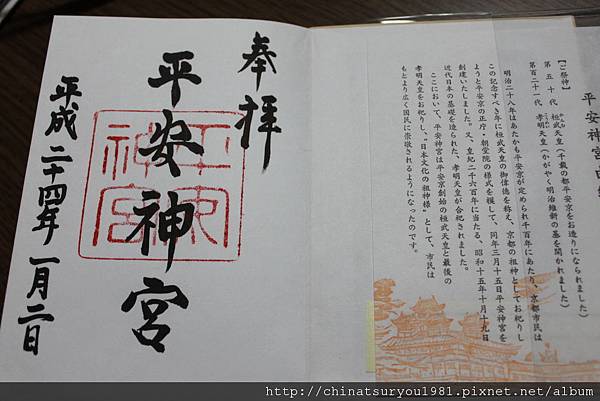 奉拝
平安神宮
平安神宮
平成二十四年一月二日
平安神宮由緒
【ご祭神】
第五十代 桓武天皇（千載の都平安京をお造りになられました）
第百二十一代 孝明天皇（かがやく明治維新の基を開かれました）
明治二十八年はあたかも平安京が定められ千百年にあたり、京都市民は
この記念すべき年に桓武天皇の御偉徳を称え、京都の祖神としてお祀りし
ようと平安京の正庁・朝堂院の様式を模して、同年三月十五日平安神宮を
創建いたしました。又、皇紀二千六百年に当たる、昭和十五年十月十九日
近代日本の基礎を造られた、孝明天皇が合祀されました。
ここにおいて、平安神宮は平安京創始の桓武天皇と最後の
孝明天皇をお祀りし、"日本文化の祖神様"として、市民は
もとより広く国民に崇敬されるようになったのです。
http://chinatsuryou1981.pixnet.net/album